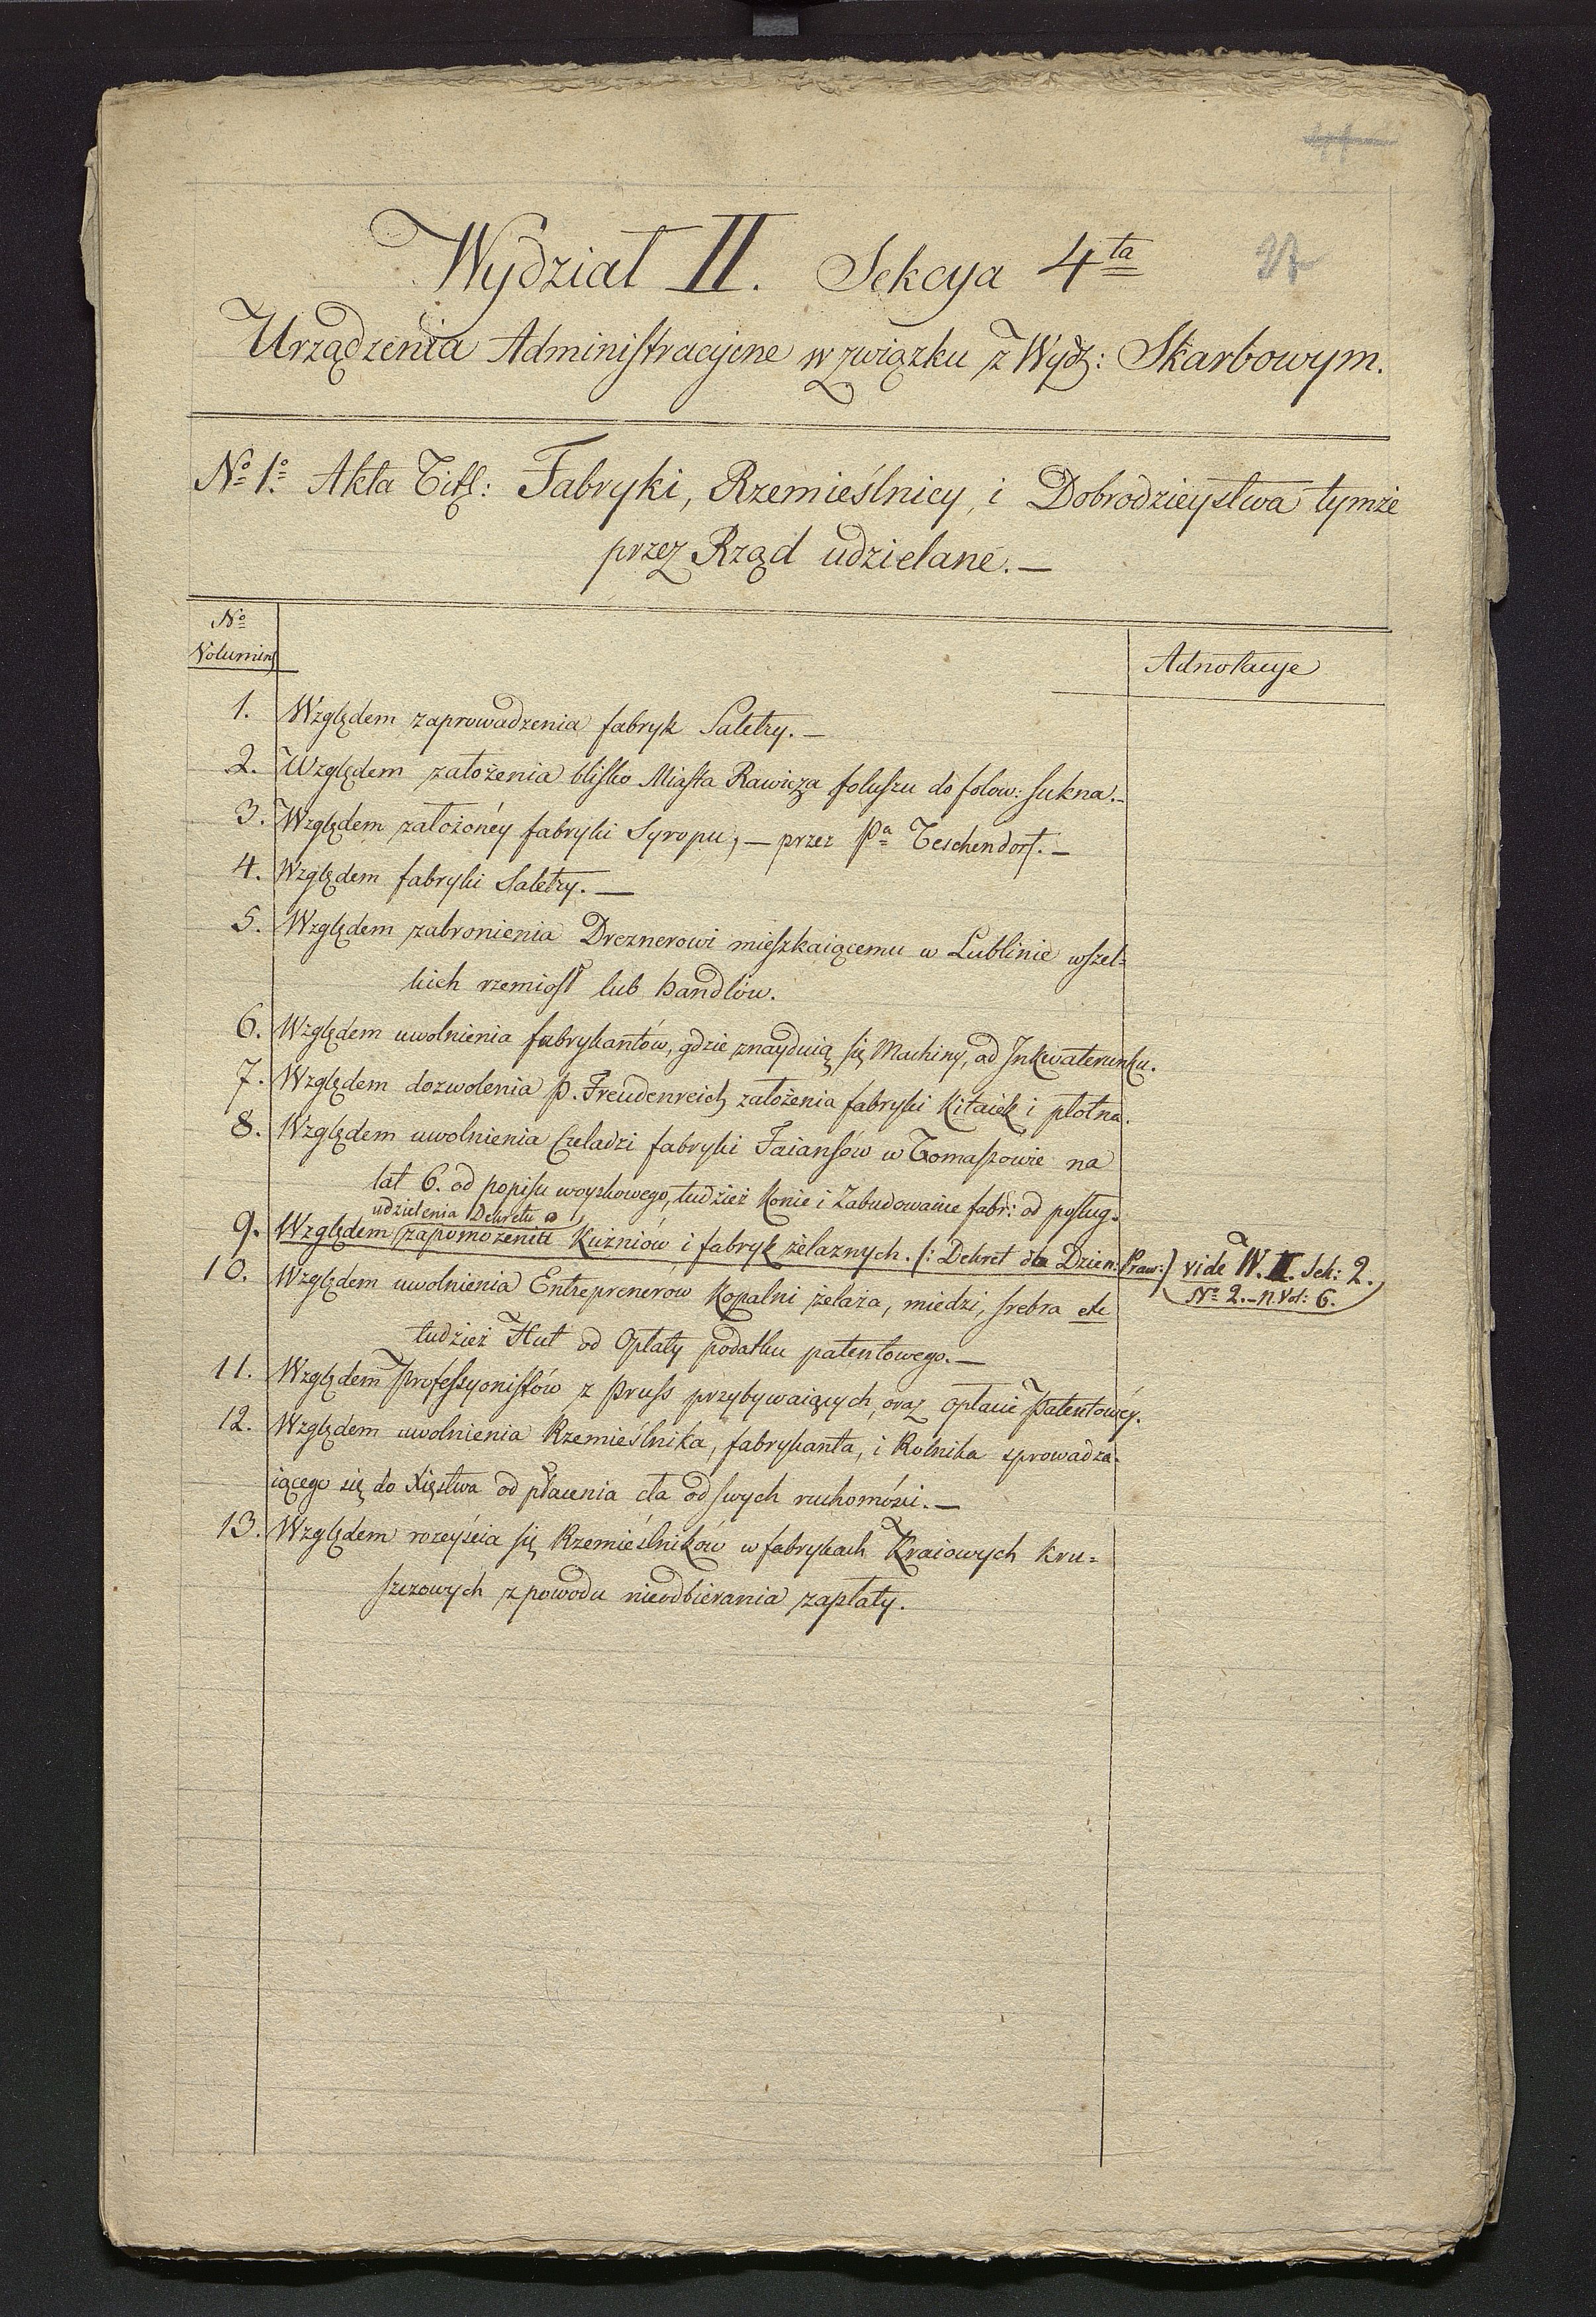 Wydział II. Sekcya 4ta
37
Urządzenia Administracyine w związku z Wydz: Skarbowym.
No 1o Akta Titl: Fabryki, Rzemieślnicy, i Dobrodzieystwa tymże
przez Rząd udzielane. —
No
Volumins
Adnotacye
1. Względem zaprowadzenia fabryk Saletry. —
2. Względem założenia blisko Miasta Rawicza foluszu do folow: sukna. —
3. Względem założoney fabryki Syropu, — przez Pa Teschendorf. —
4. Względem fabryki Saletry. —
5. Względem zabronienia Dreznerowi mieszkaiącemu w Lublinie wszel=
kich rzemiosł lub handlów.
6. Względem uwolnienia fabrykantów, gdzie znayduią się Machiny, od Inkwaterunku.
7. Względem dozwolenia P. Freudenreich założenia fabryki Kitaiek i płotna.
8. Względem uwolnienia Czeladzi fabryki Faiansów w Tomaszowie na
lat 6. od popisu woyskowego, tudzież Konie i Zabudowanie fabr: od posług.
udzielenia Dekretu o
9. Względem zapomożenia Kuźniów i fabryk żelaznych. (: Dekret do Dzien: Praw:) vide W. II. Sek: 2.
No 2. – N. Vol: 6.
10. Względem uwolnienia Entreprenerow Kopalni żelaza, miedzi, srebra etc
tudzież Hut od Opłaty podatku patentowego. —
11. Względem Professyonistów z Pruss przybywaiących, oraz opłacie Patentowéy.
12. Względem uwolnienia Rzemieślnika, fabrykanta, i Rolnika sprowadza=
iącego się do Xięstwa od płacenia cła od swych ruchomości. —
13. Względem rozeyścia się Rzemieślników w fabrykach Kraiowych Kru=
szcowych z powodu nieodbierania zapłaty.